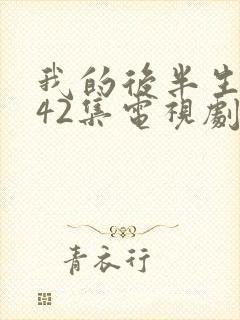 我的後半生
42集電視劇
青衣行